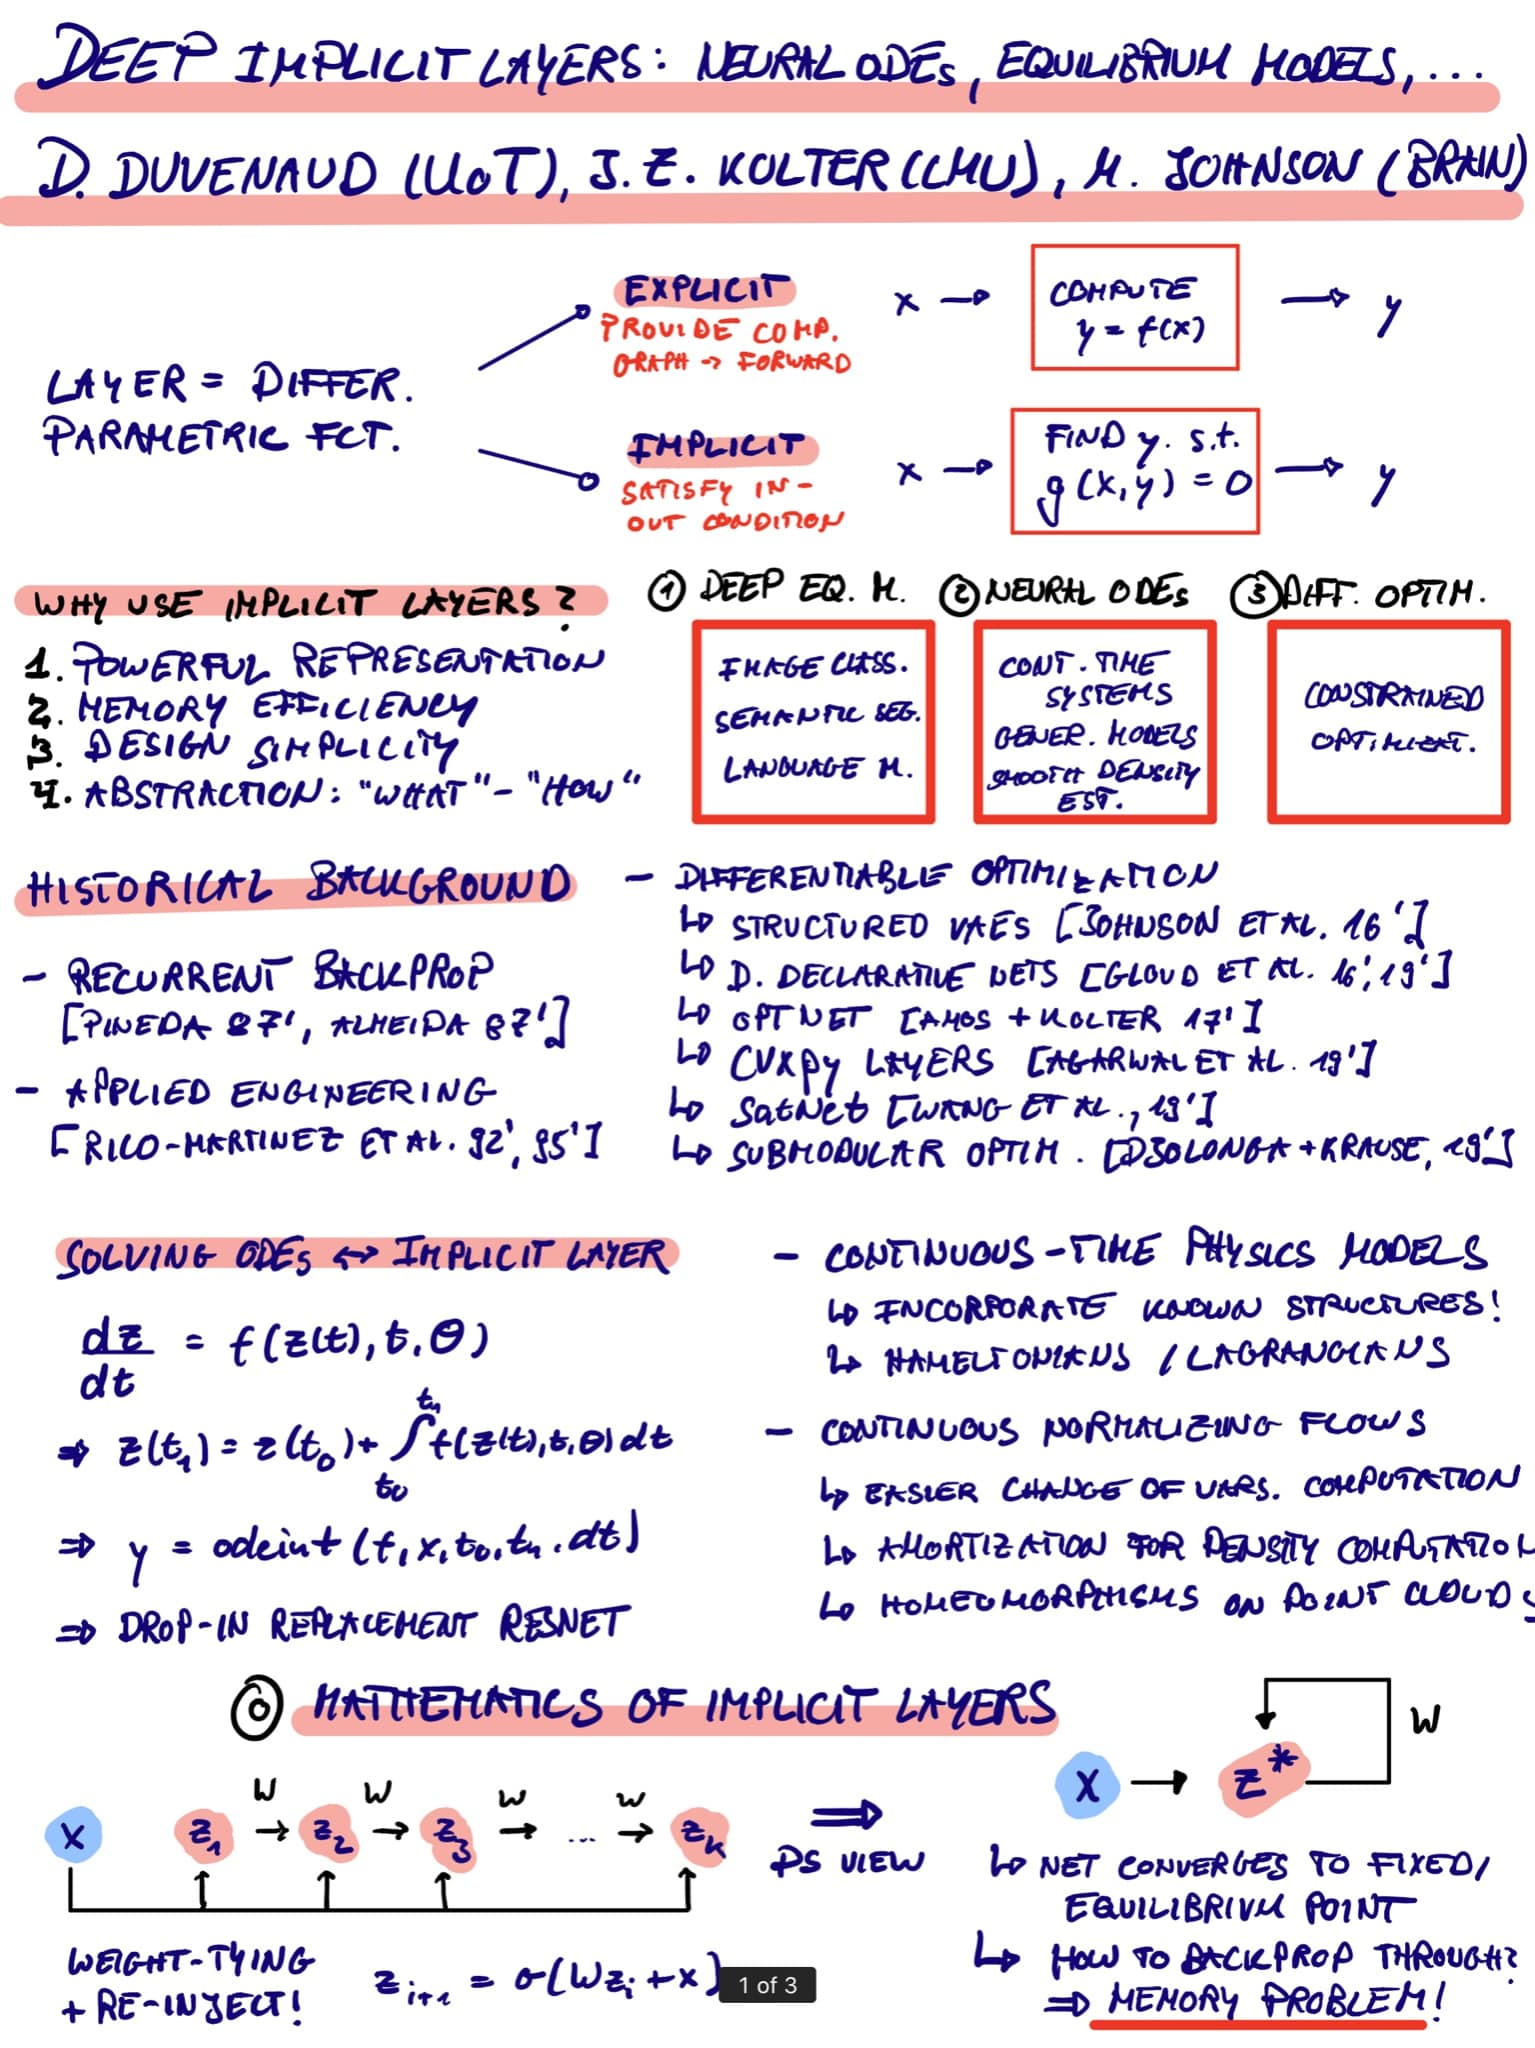 DEEP IMPLICIT LAYERS: NEURAL ODEs, EQUILIBRIUM MODELS, ...
D. DUVENAUD (UoT), J. Z. KOLTER (CMU), M. JOHNSON (BRAIN)
LAYER = DIFFER.
PARAMETRIC FCT.
EXPLICIT
PROVIDE COMP.
GRAPH → FORWARD
x →
COMPUTE
y = f(x)
→ y
IMPLICIT
SATISFY IN-
OUT CONDITION
x →
FIND y. s.t.
g(x,y) = 0
→ y
WHY USE IMPLICIT LAYERS?
1. POWERFUL REPRESENTATION
2. MEMORY EFFICIENCY
3. DESIGN SIMPLICITY
4. ABSTRACTION: "WHAT"-"HOW"
① DEEP EQ. M.
IMAGE CLASS.
SEMANTIC SEG.
LANGUAGE M.
② NEURAL ODEs
CONT.-TIME
SYSTEMS
GENER. MODELS
SMOOTH DENSITY
EST.
③ DIFF. OPTIM.
CONSTRAINED
OPTIMIZAT.
HISTORICAL BACKGROUND
- RECURRENT BACKPROP
[PINEDA 87', ALMEIDA 87']
- APPLIED ENGINEERING
[RICO-MARTINEZ ET AL. 92', 95']
- DIFFERENTIABLE OPTIMIZATION
↳ STRUCTURED VAEs [JOHNSON ET AL. 16']
↳ D. DECLARATIVE NETS [GLOUD ET AL. 16', 19']
↳ OPTNET [AMOS + KOLTER 17']
↳ CVXpy LAYERS [AGARWAL ET AL. 19']
↳ SatNet [WANG ET AL., 19']
↳ SUBMODULAR OPTIM. [DJOLONGA + KRAUSE, 19']
SOLVING ODEs ↔ IMPLICIT LAYER
dz/dt = f(z(t), t, θ)
⇒ z(t₁) = z(t₀) + ∫ f(z(t), t, θ) dt
t₀
⇒ y = odeint(f, x, t₀, t₁, dt)
⇒ DROP-IN REPLACEMENT RESNET
- CONTINUOUS-TIME PHYSICS MODELS
↳ INCORPORATE KNOWN STRUCTURES!
↳ HAMELTONIANS / LAGRANGIANS
- CONTINUOUS NORMALIZING FLOWS
↳ EASIER CHANGE OF VARS. COMPUTATION
↳ AMORTIZATION FOR DENSITY COMPUTATION
↳ HOMEOMORPHISMS ON POINT CLOUDS
⓪ MATHEMATICS OF IMPLICIT LAYERS
W W W W
x z₁ → z₂ → z₃ → ... → zₖ
WEIGHT-TYING
+ RE-INJECT!
zᵢ₊₁ = σ(Wzᵢ + x)
⇒
DS VIEW
W
x → z*
↳ NET CONVERGES TO FIXED/
EQUILIBRIUM POINT
↳ HOW TO BACKPROP THROUGH?
⇒ MEMORY PROBLEM!
1 of 3